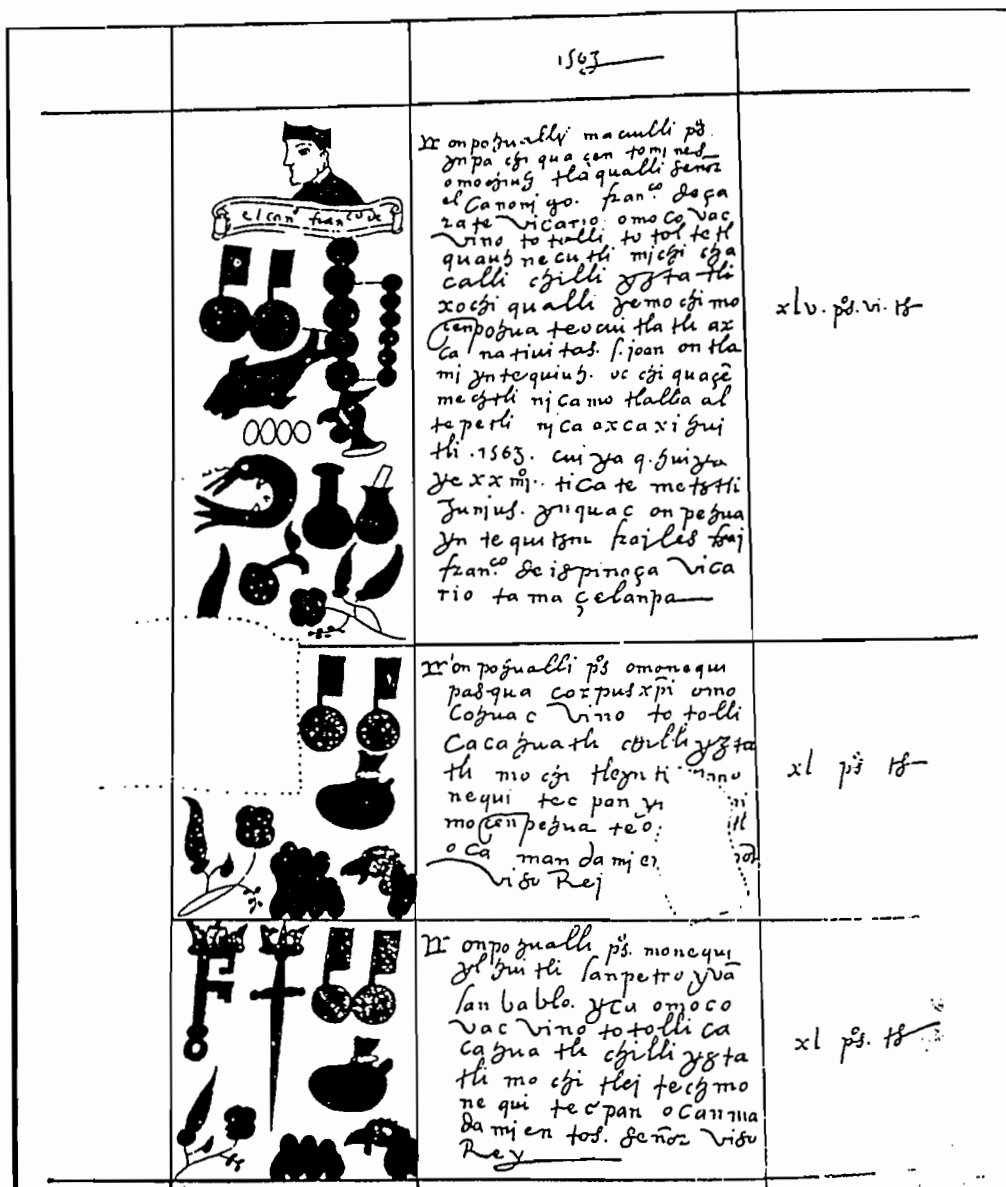 1563
onpohualli macuilli ps.
ynpa chiquacen tomines
omochiuh tlaqualli señor
el Canonigo. franco. de ça
rate vicario. omocovac
vino totolli totoltetl
quauhnecutli michi cha
calli chilli yztatli
xochiqualli yemochimo
cenpohua teocuitlatli ax
ca natiuitas. s. joan ontla
mi yntequiuh. oc chiquaçe
metztli nicamo tlallia al
tepetli nica oxcaxihui
tli .1563. cuiya q. huiya
ye xx iiij. ticate metztli
Junjus. yniquac onpehua
yn tequitznu frailes frai
franco. de ispinoça vica
rio tamaçelanpa
el cano franco de
xlv. ps. vi. ts
onpohualli ps omonequi
pasqua corpus xpi omo
cohuac vino totolli
cacahuatli chilli yzta
tli mochi tleynti
nequi tecpan yn
mocenpehua teo
oca mandamien
viso Rej
xl ps ts
onpohualli ps. monequi
ylhuitli sanpetro yuā
san bablo. ycu omoco
vac vino totolli ca
cahuatli chilli yzta
tli mochi tlej techmo
nequi tecpan ocanma
damientos. señor viso
Rey
xl ps. ts